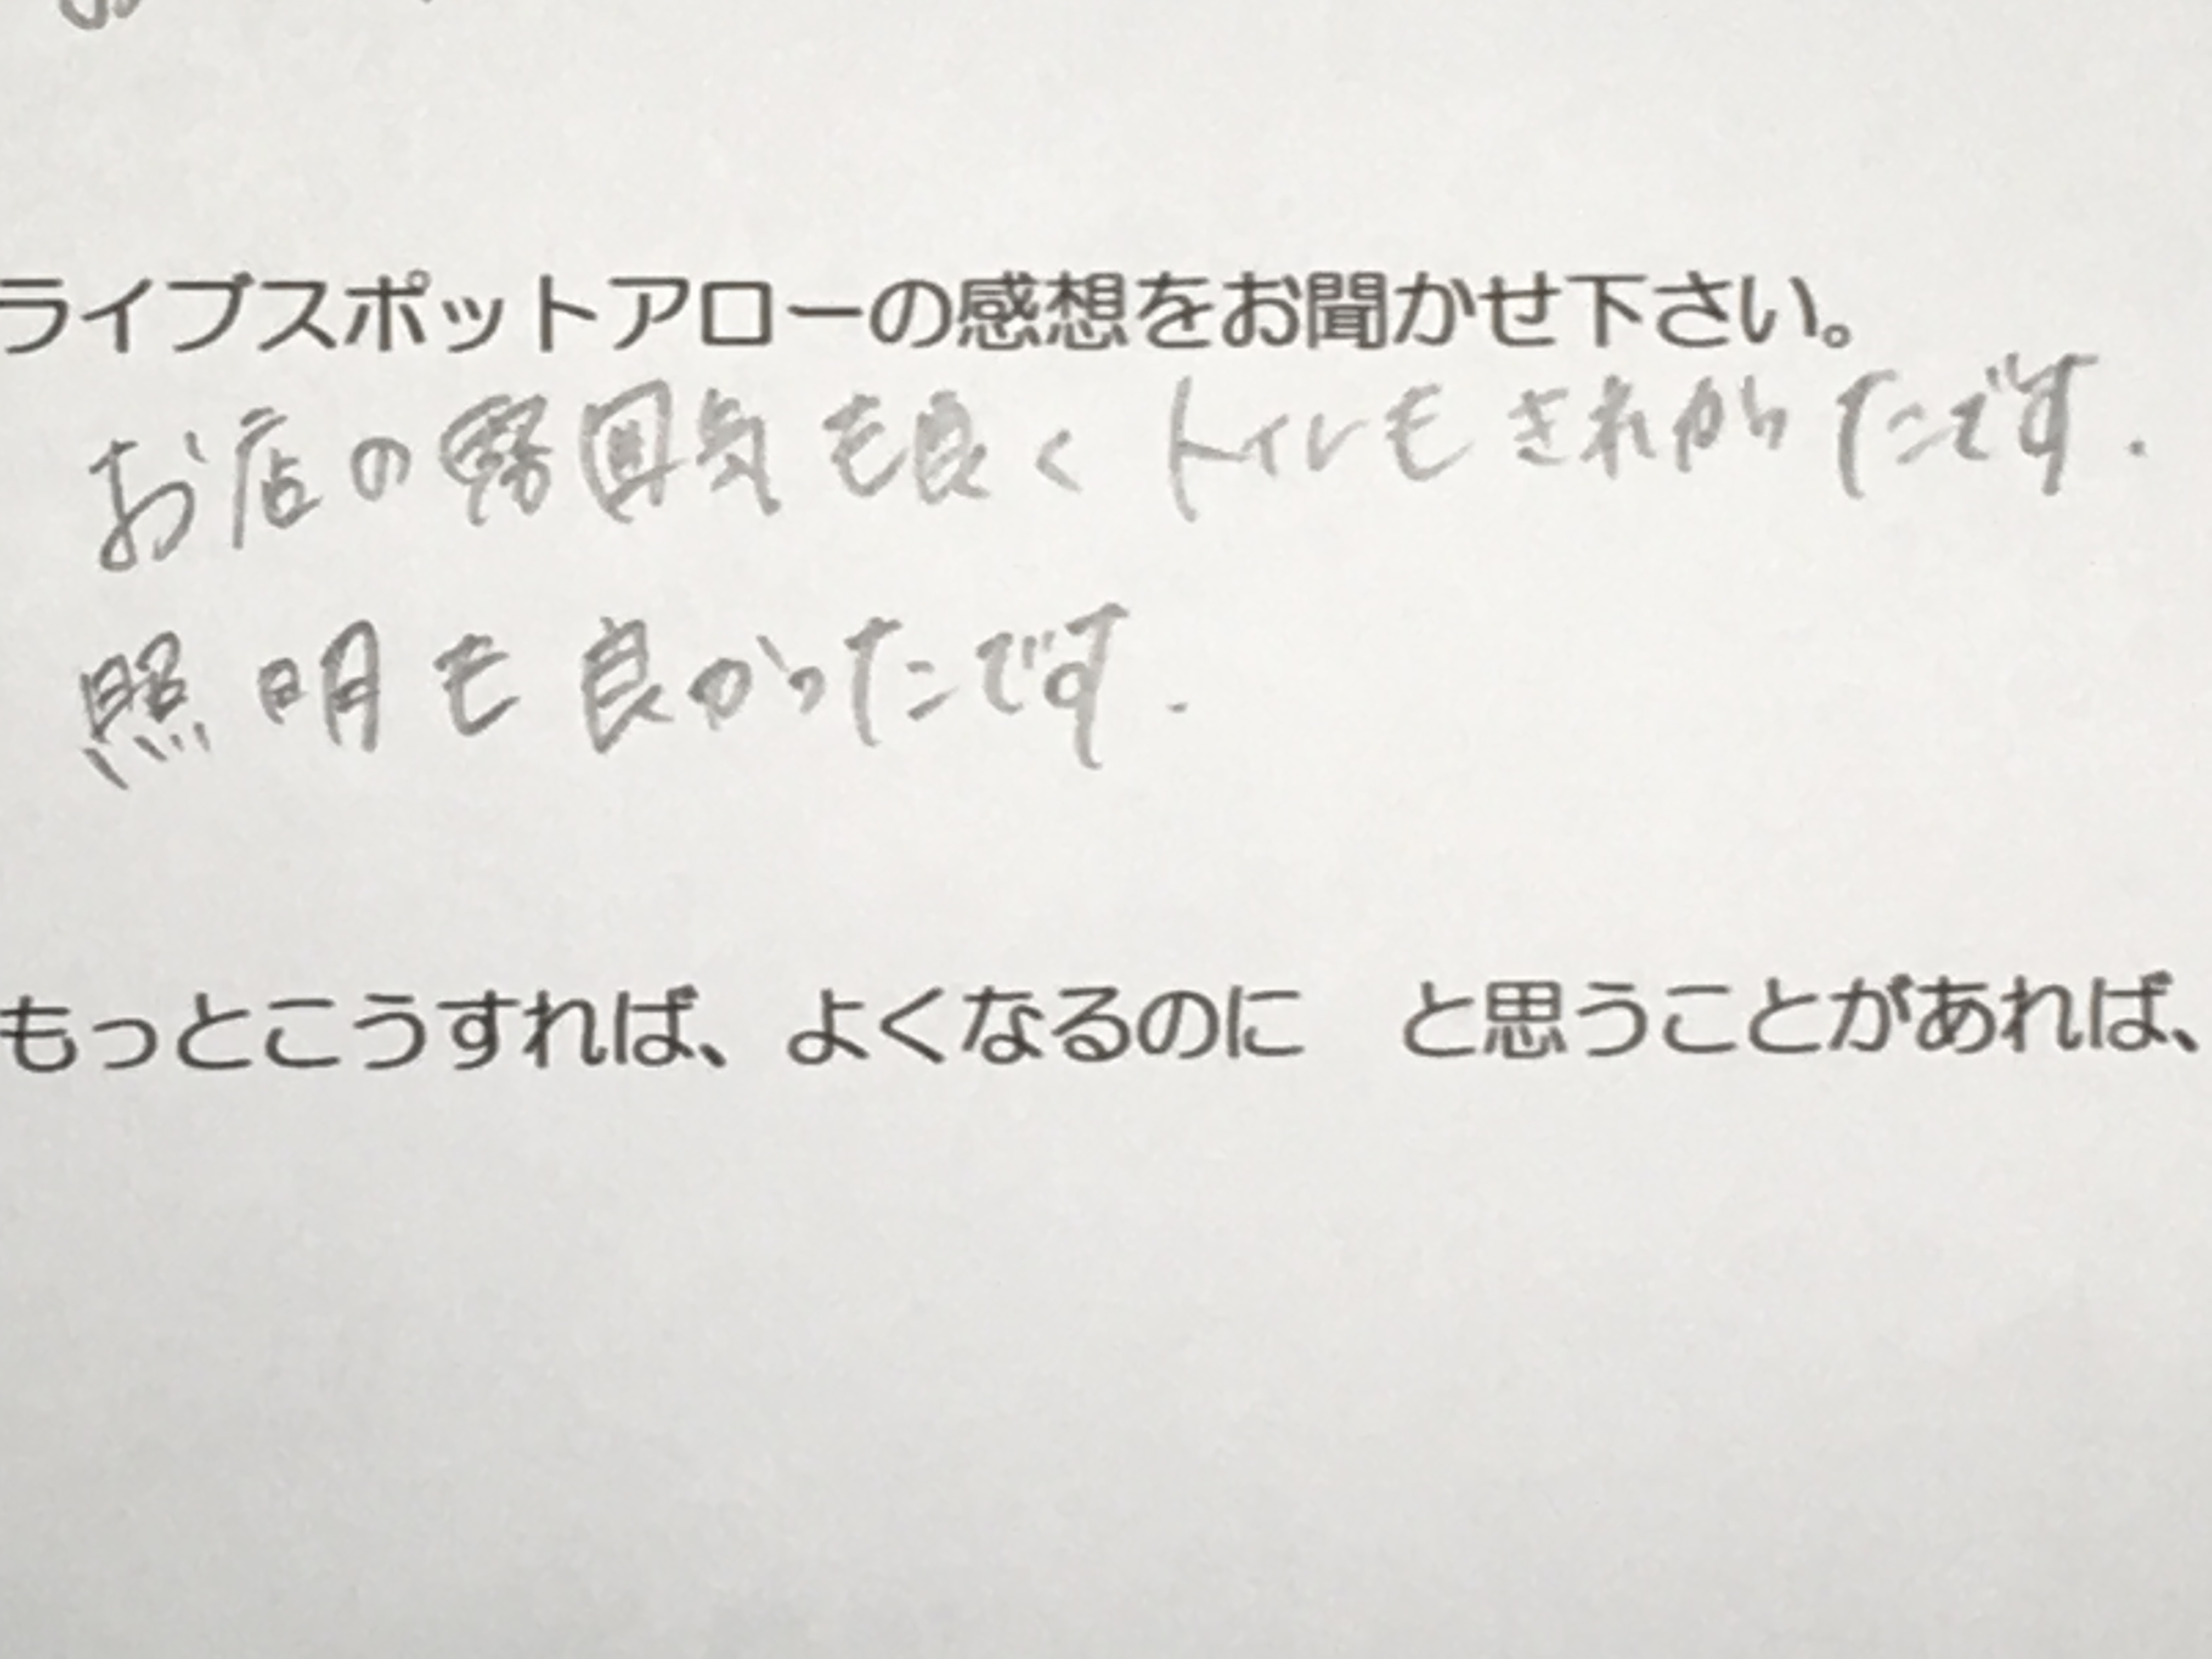 ライブスポットアローの感想をお聞かせ下さい。
お店の雰囲気も良く トイレもきれかったです.
照明も良かったです.
もっとこうすれば、よくなるのに　と思うことがあれば、